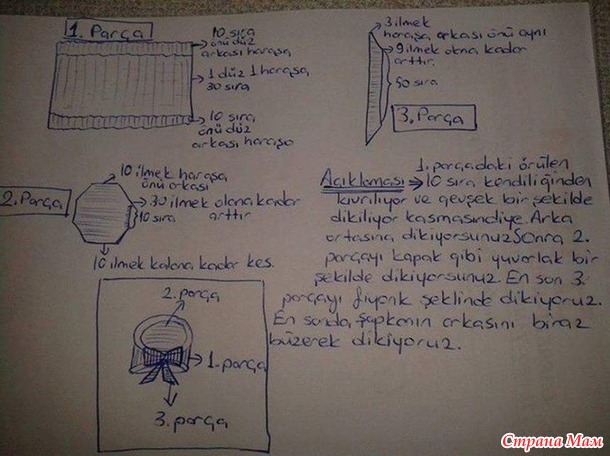 1. Parça
10 sıra
önü düz
arkası haraşa
1 düz 1 haraşa
30 sıra
10 sıra
önü düz
arkası haraşo
3 ilmek
haraşa arkası önü aynı
9 ilmek olana kadar
arttır.
50 sıra
3. Parça
2. Parça
10 ilmek haraşa
önü arkası
30 ilmek olana kadar
arttır
10 sıra
10 ilmek kalana kadar kes.
Açıklaması → 1. parçadaki örülen
10 sıra kendiliğinden
kıvrılıyor ve gevşek bir şekilde
dikiliyor kasmasın diye. Arka
ortasına dikiyorsunuz. Sonra 2.
parçayı kapak gibi yuvarlak bir
şekilde dikiyorsunuz. En son 3.
parçayı fiyonk şeklinde dikiyoruz.
En sonda şapkanın arkasını biraz
büzerek dikiyoruz.
2. parça
1. parça
3. parça
Страна Мам